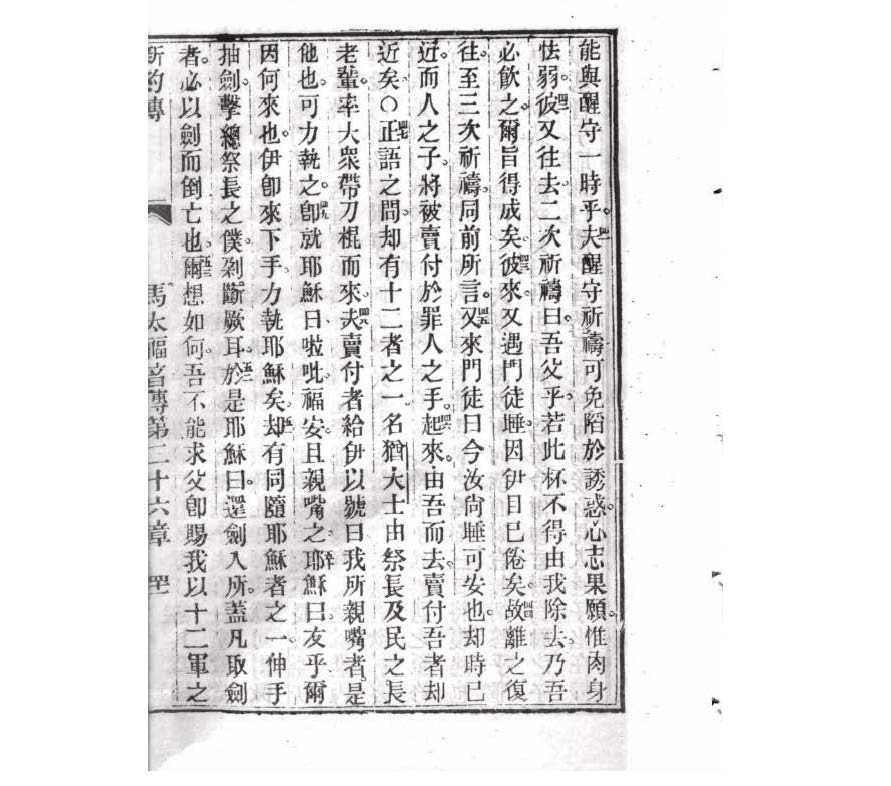 能與醒守一時乎。四一夫醒守祈禱可免陷於誘惑。心志果願。惟肉身
怯弱。四二彼又往去。二次祈禱曰。吾父乎。若此杯不得由我除去。乃吾
必飲之。爾旨得成矣。四三彼來。又遇門徒睡。因伊目已倦矣。四四故離之復
往。至三次祈禱。同前所言。四五又來門徒曰。今汝尚睡可安也。却時已
近。而人之子。將被賣付於罪人之手。四六起來。由吾而去。賣付吾者却
近矣。○四七正語之間。却有十二者之一名猶大士由祭長及民之長
老輩。率大衆帶刀棍而來。四八夫賣付者給伊以號曰。我所親嘴者。是
他也。可力執之。四九卽就耶穌曰。啦吡福安。且親嘴之。五十耶穌曰。友乎。爾
因何來也。伊卽來下手。力執耶穌矣。五一却有同隨耶穌者之一。伸手
抽劍擊總祭長之僕。剁斷厥耳。五二於是耶穌曰。還劍入所。蓋凡取劍
者。必以劍而倒亡也。五三爾想如何。吾不能求父卽賜我以十二軍之
新約傳 馬太福音傳第二十六章